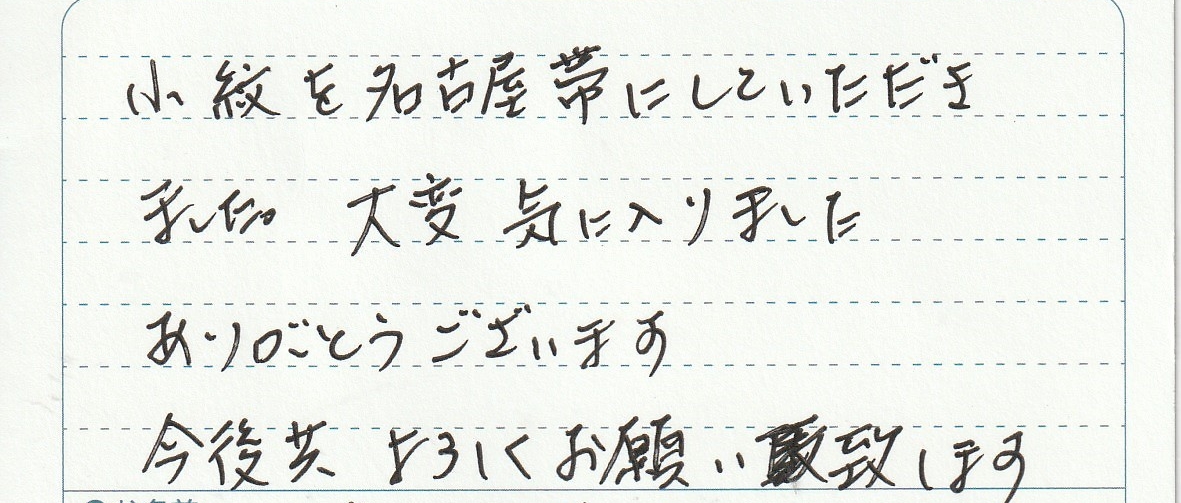 小紋を名古屋帯にしていただき
ました。 大変 気に入りました
ありがとうございます
今後共 よろしくお願い致します